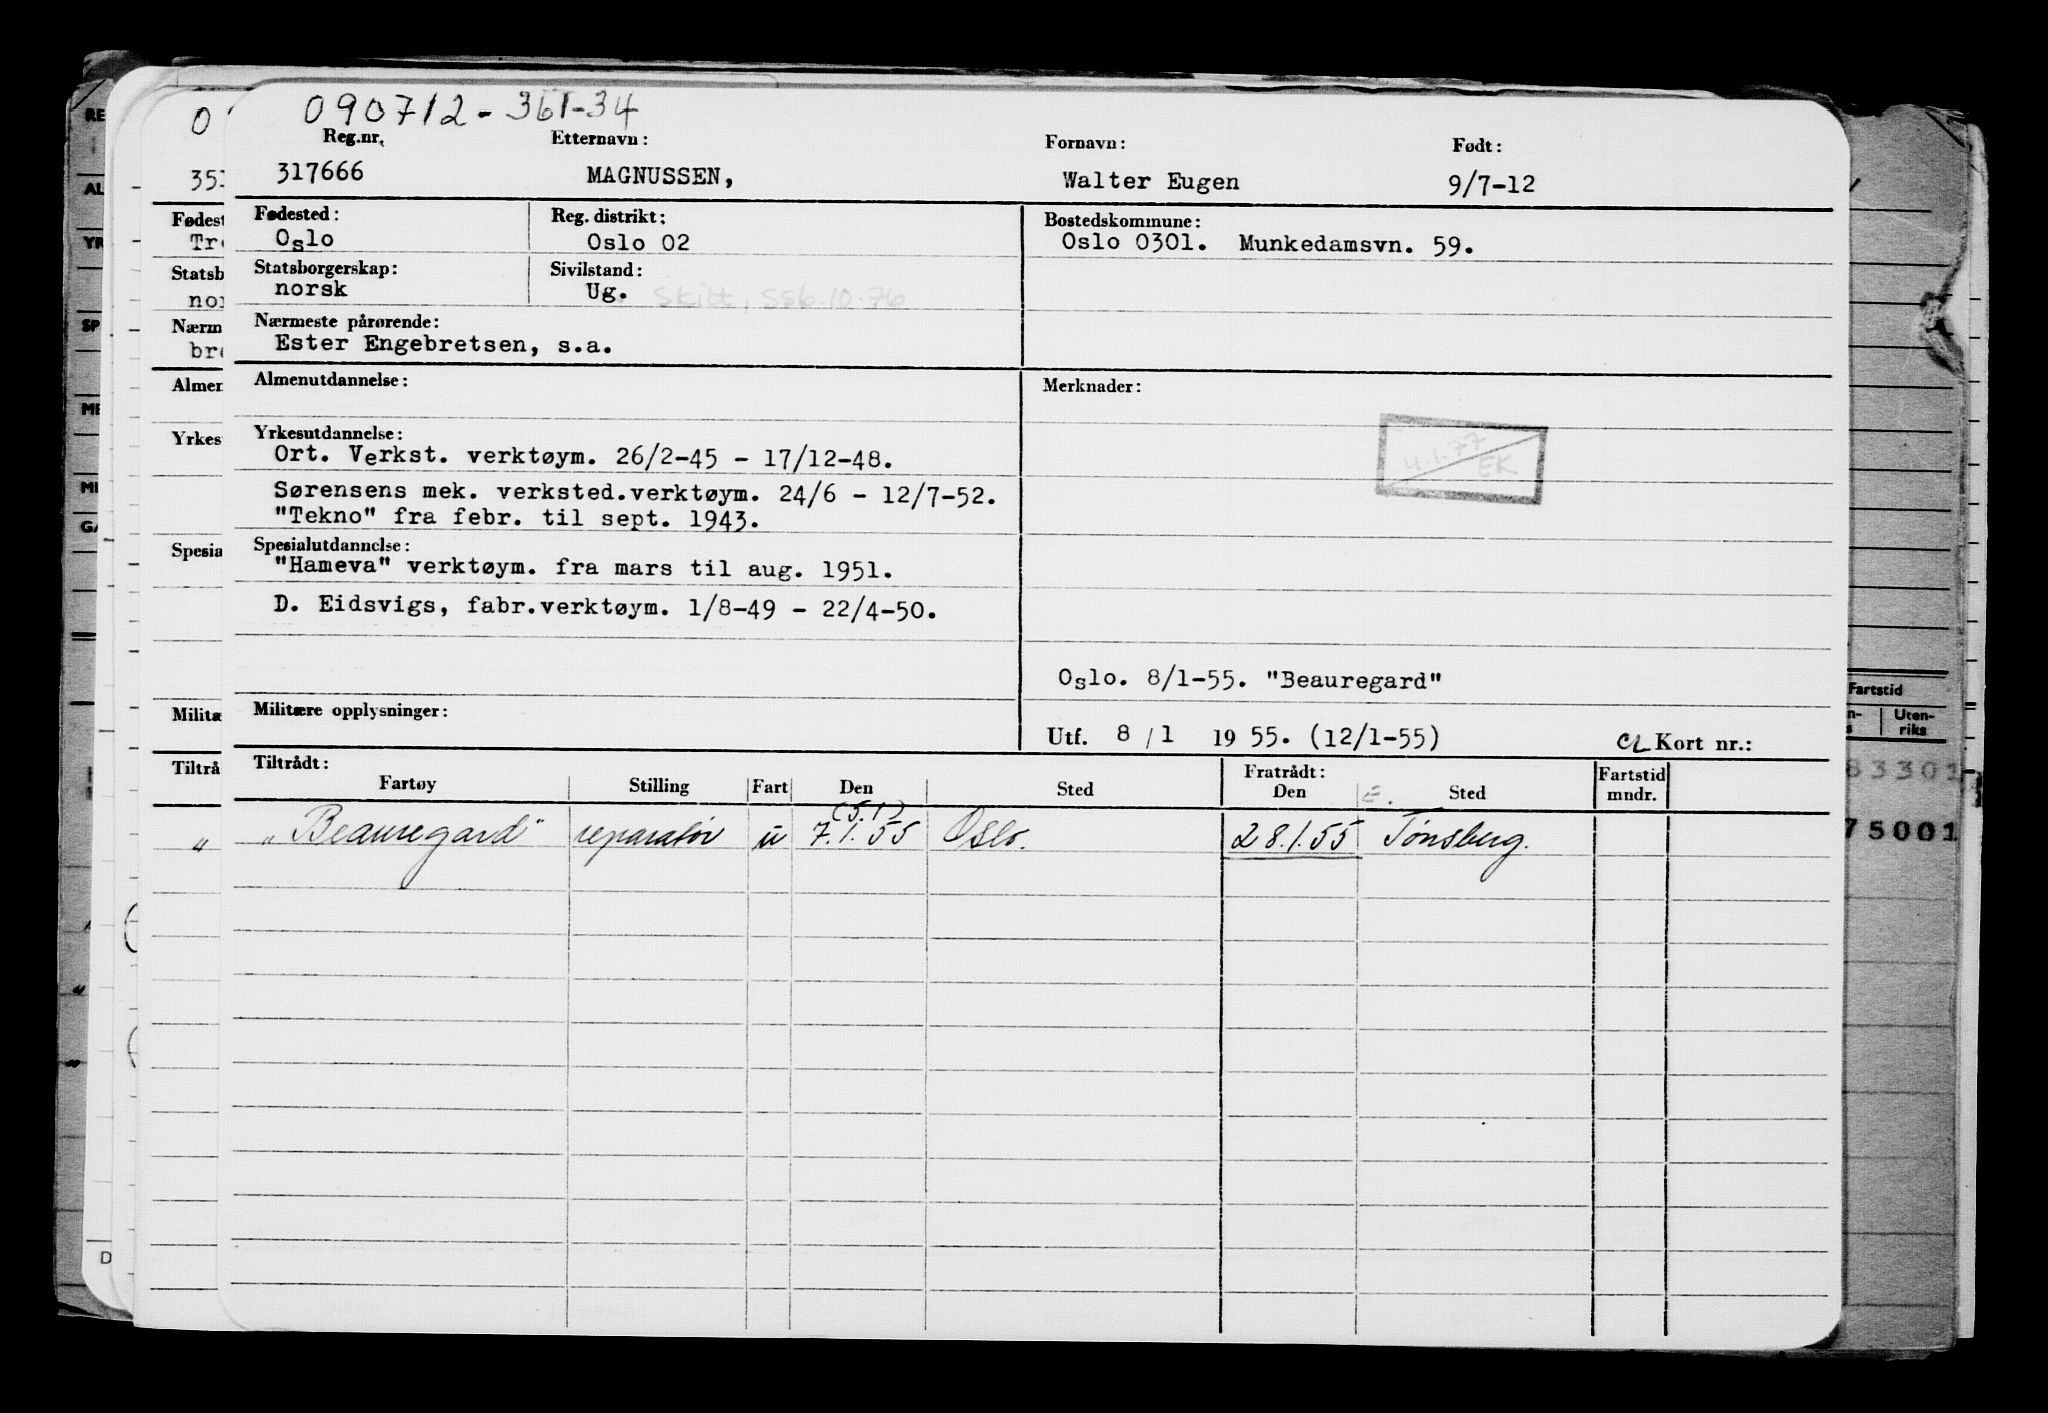 090712-361-34
Reg.nr. Etternavn: Fornavn: Født:
317666 MAGNUSSEN, Walter Eugen 9/7-12
Fødested: Reg. distrikt: Bostedskommune:
Oslo Oslo 02 Oslo 0301. Munkedamsvn. 59.
Statsborgerskap: Sivilstand:
norsk Ug. Skilt, SS6.10.76
Nærmeste pårørende:
Ester Engebretsen, s.a.
Almenutdannelse: Merknader:
Yrkesutdannelse:
Ort. Verkst. verktøym. 26/2-45 - 17/12-48.
4.1.77
EK
Sørensens mek. verksted.verktøym. 24/6 - 12/7-52.
"Tekno" fra febr. til sept. 1943.
Spesialutdannelse:
"Hameva" verktøym. fra mars til aug. 1951.
D. Eidsvigs, fabr.verktøym. 1/8-49 - 22/4-50.
Oslo. 8/1-55. "Beauregard"
Militære opplysninger:
Utf. 8/1 1955. (12/1-55) Kort nr.:
Tiltrådt: Fratrådt: Fartstid
Fartøy Stilling Fart Den Sted Den Sted mndr.
(5.1)
"Beauregard" reparatør u 7.1.55 Oslo. 28.1.55 Tønsberg.
Fartstid
Uten-
riks
83301
75001